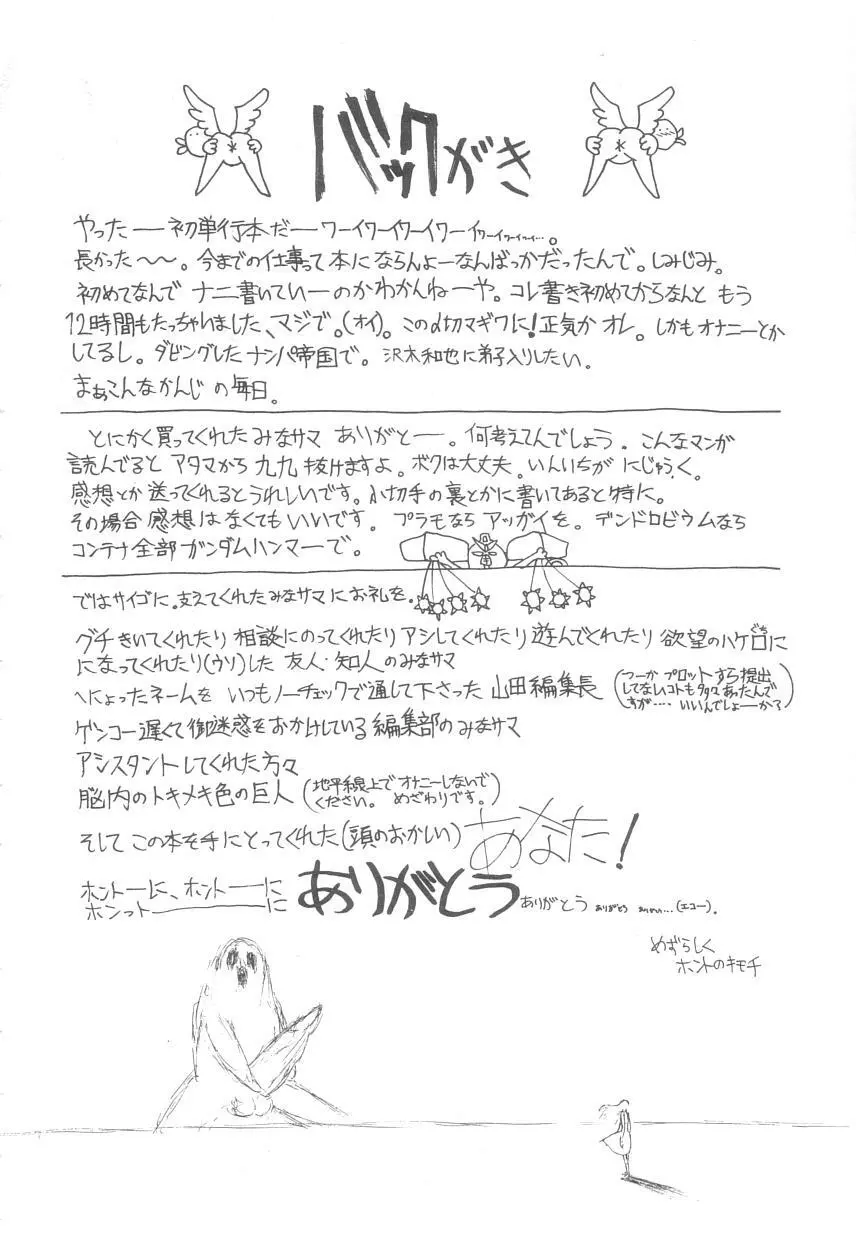 バックがき
やったー初単行本だーワーイワーイワーイワーイワーイワーイワーイ…。
長かった〜〜。今までの仕事って本にならんよーなんばっかだったんで。しみじみ。
初めてなんで ナニ書いていーのかわかんねーや。コレ書き初めてからなんと もう
12時間もたっちゃいました、マジで。(オイ)。この〆切マギワに!正気か オレ。しかもオナニーとか
してるし。ダビングしたナンパ帝国で。沢木和也に弟子入りしたい。
まぁこんなかんじの毎日。
とにかく買ってくれたみなサマ ありがとー。何考えてんでしょう。こんなマンガ
読んでると アタマから 九九 抜けますよ。ボクは大丈夫。いんいちが にじゅうく。
感想とか送ってくれるとうれしいです。小切手の裏とかに書いてあると特に。
その場合 感想はなくてもいいです。プラモなら アッガイを。デンドロビウムなら
コンテナ全部ガンダムハンマーで。
ではサイゴに。支えてくれたみなサマにお礼を。
グチきいてくれたり 相談にのってくれたり アシしてくれたり 遊んでくれたり 欲望のハケ口に
ぐち
になってくれたり(ウソ)した 友人・知人のみなサマ
へにょったネームを いつもノーチェックで通して下さった 山田編集長
(つーか プロットすら提出
してないコトも多々あったんで
すが…. いいんでしょーか?)
ゲンコー遅くて御迷惑をおかけしている編集部のみなサマ
アシスタントしてくれた方々
脳内のトキメキ色の巨人
(地平線上でオナニーしないで
ください。 めざわりです。)
そして この本を手にとってくれた(頭のおかしい) あなた!
ホントーに、ホントーに
ホンっトーーに ありがとう ありがとう ありがとう …(エコー)。
めずらしく
ホントのキモチ